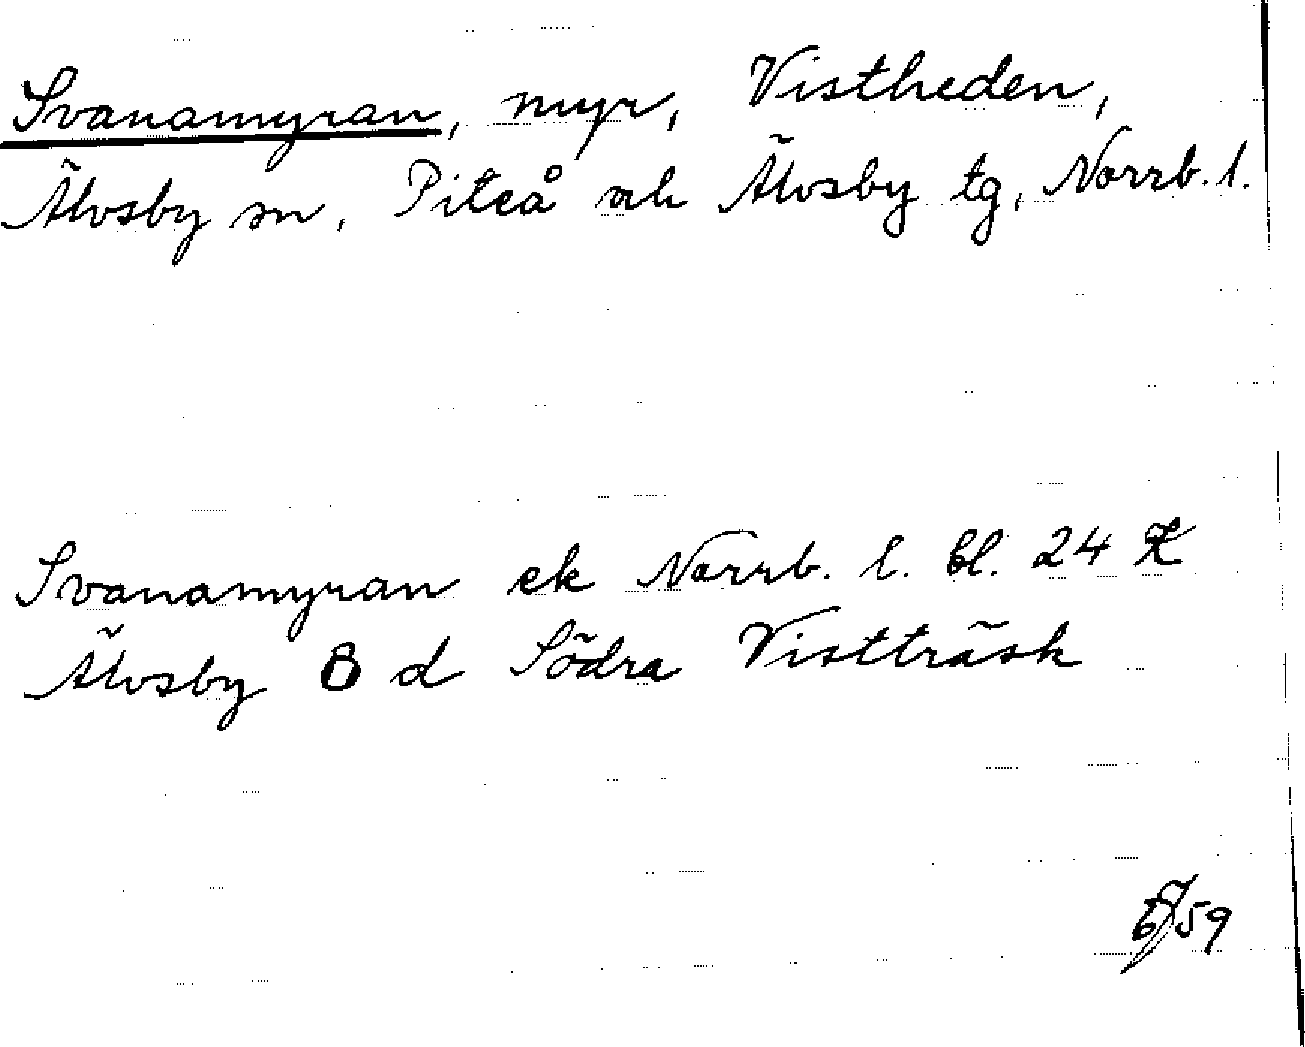 Svanamyran, myr, Vistheden,
Älvsby sn, Piteå och Älvsby tg, Norrb. l.
Svanamyran ek Norrb. l. bl. 24 Z
Älvsby B d Södra Vistträsk
59